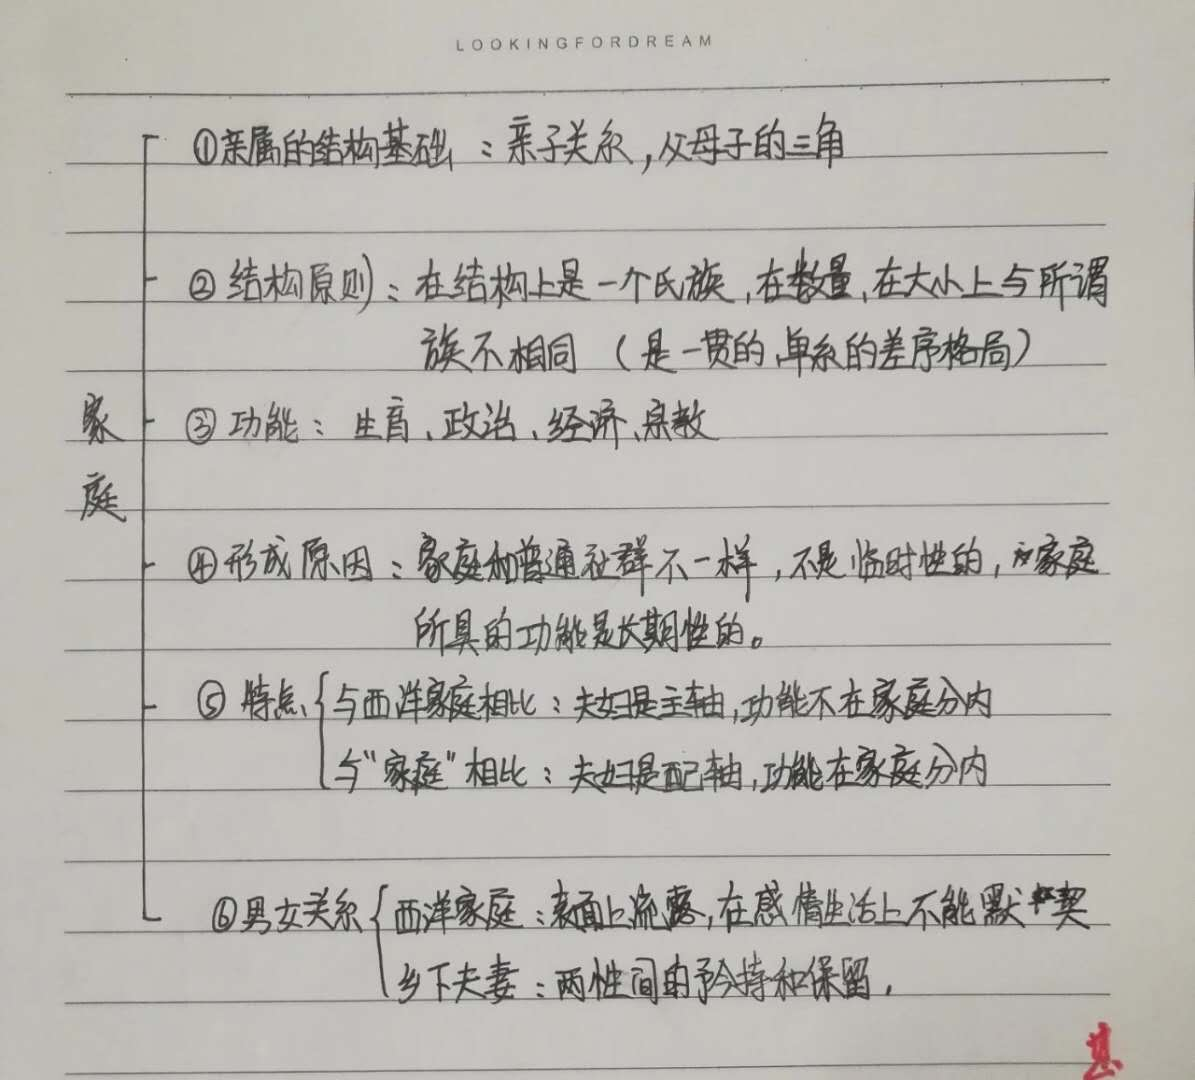 LOOKINGFORDREAM
①亲属的结构基础：亲子关系，父母子的三角
②结构原则：在结构上是一个氏族，在数量，在大小上与所谓
族不相同（是一贯的，单系的差序格局）
家庭
③功能：生育、政治、经济、宗教
④形成原因：家庭和普通社群不一样，不是临时性的，家庭
所具的功能是长期性的。
⑤特点
与西洋家庭相比：夫妇是主轴，功能不在家庭分内
与“家庭”相比：夫妇是配轴，功能在家庭分内
⑥男女关系
西洋家庭：表面上流露，在感情生活上不能默契
乡下夫妻：两性间的矜持和保留.